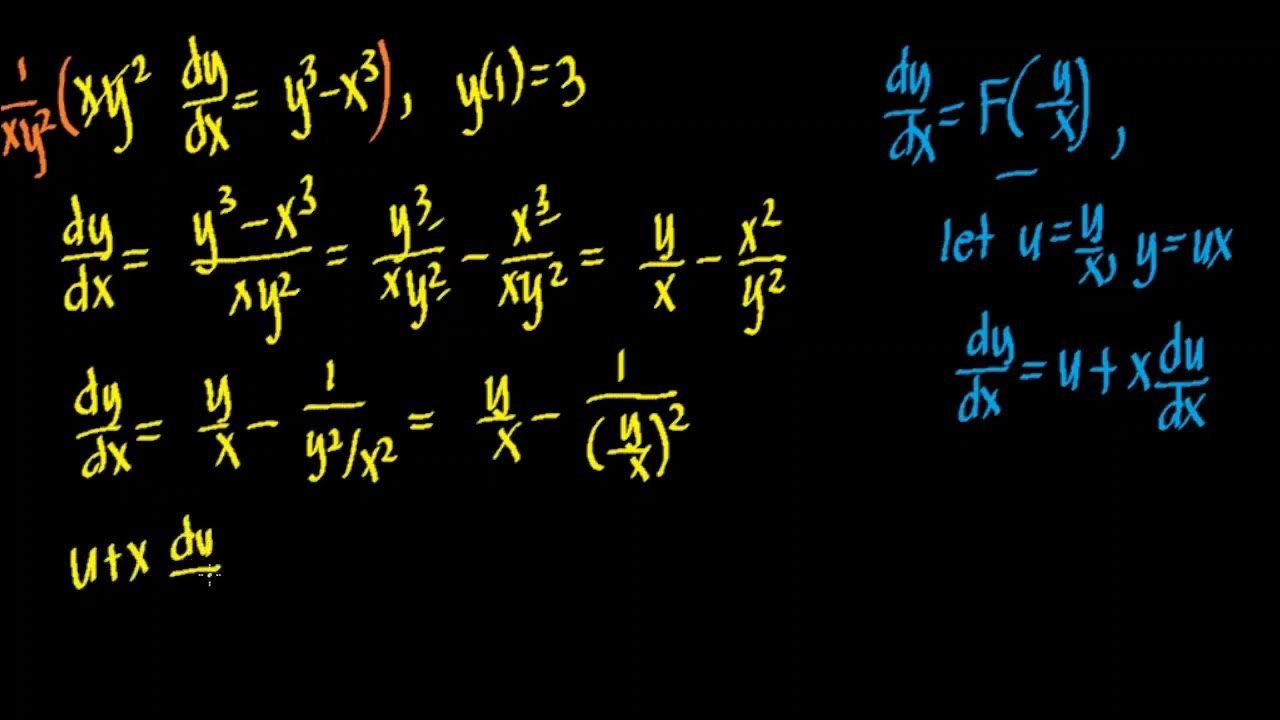 1/xy² (xy² dy/dx = y³ - x³), y(1) = 3
dy/dx = (y³ - x³)/xy² = y³/xy² - x³/xy² = y/x - x²/y²
dy/dx = y/x - 1/(y²/x²) = y/x - 1/(y/x)²
u + x du
dy/dx = F(y/x),
let u = y/x, y = ux
dy/dx = u + x du/dx